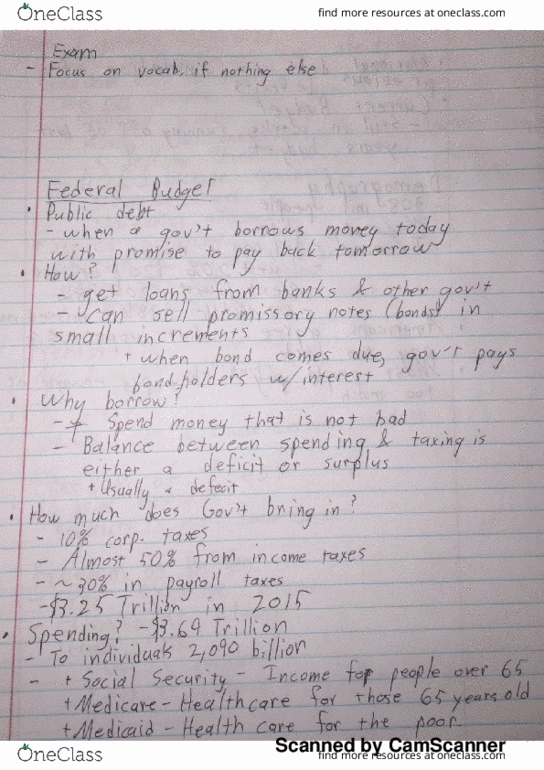 OneClass
find more resources at oneclass.com
Exam
- Focus on vocab, if nothing else
Federal Budget
• Public debt
- when a gov't borrows money today
with promise to pay back tomorrow
• How?
- get loans from banks & other gov't
- can sell promissory notes (bonds) in
small increments
+ when bond comes due, gov't pays
bondholders w/interest
• Why borrow?
- Spend money that is not had
- Balance between spending & taxing is
either a deficit or surplus
+ Usually a defecit
• How much does Gov't bring in?
- 10% corp. taxes
- Almost 50% from income taxes
- ~ 30% in payroll taxes
- $3.25 Trillion in 2015
• Spending? - $3.69 Trillion
- To individuals 2,090 billion
- + Social Security - Income for people over 65
+ Medicare - Healthcare for those 65 years old
+ Medicaid - Health care for the poor.
Scanned by CamScanner
OneClass
find more resources at oneclass.com